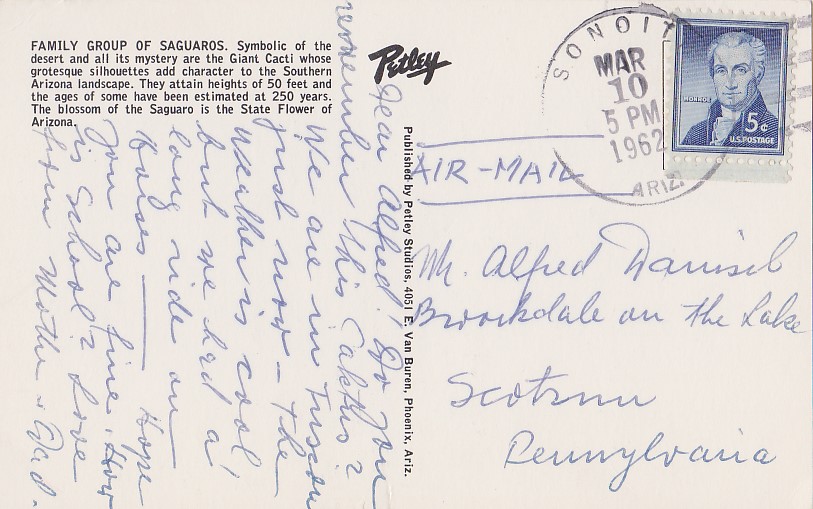 FAMILY GROUP OF SAGUAROS. Symbolic of the
desert and all its mystery are the Giant Cacti whose
grotesque silhouettes add character to the Southern
Arizona landscape. They attain heights of 50 feet and
the ages of some have been estimated at 250 years.
The blossom of the Saguaro is the State Flower of
Arizona.
Petley
Published by Petley Studios, 4051 E. Van Buren, Phoenix, Ariz.
Dear Alfred! Do you
remember this Caktus?
We are in Tusson
just now – The
weather is cool
but we had a
long ride on
Horses — Hope
you are fine. How
is School? Love
from Mother & Dad.
SONOIT
MAR
10
5 PM
1962
ARIZ
MONROE
5¢
U.S. POSTAGE
AIR-MAIL
Mr. Alfred
Brookdale on the Lake
Scotrun
Pennylvania